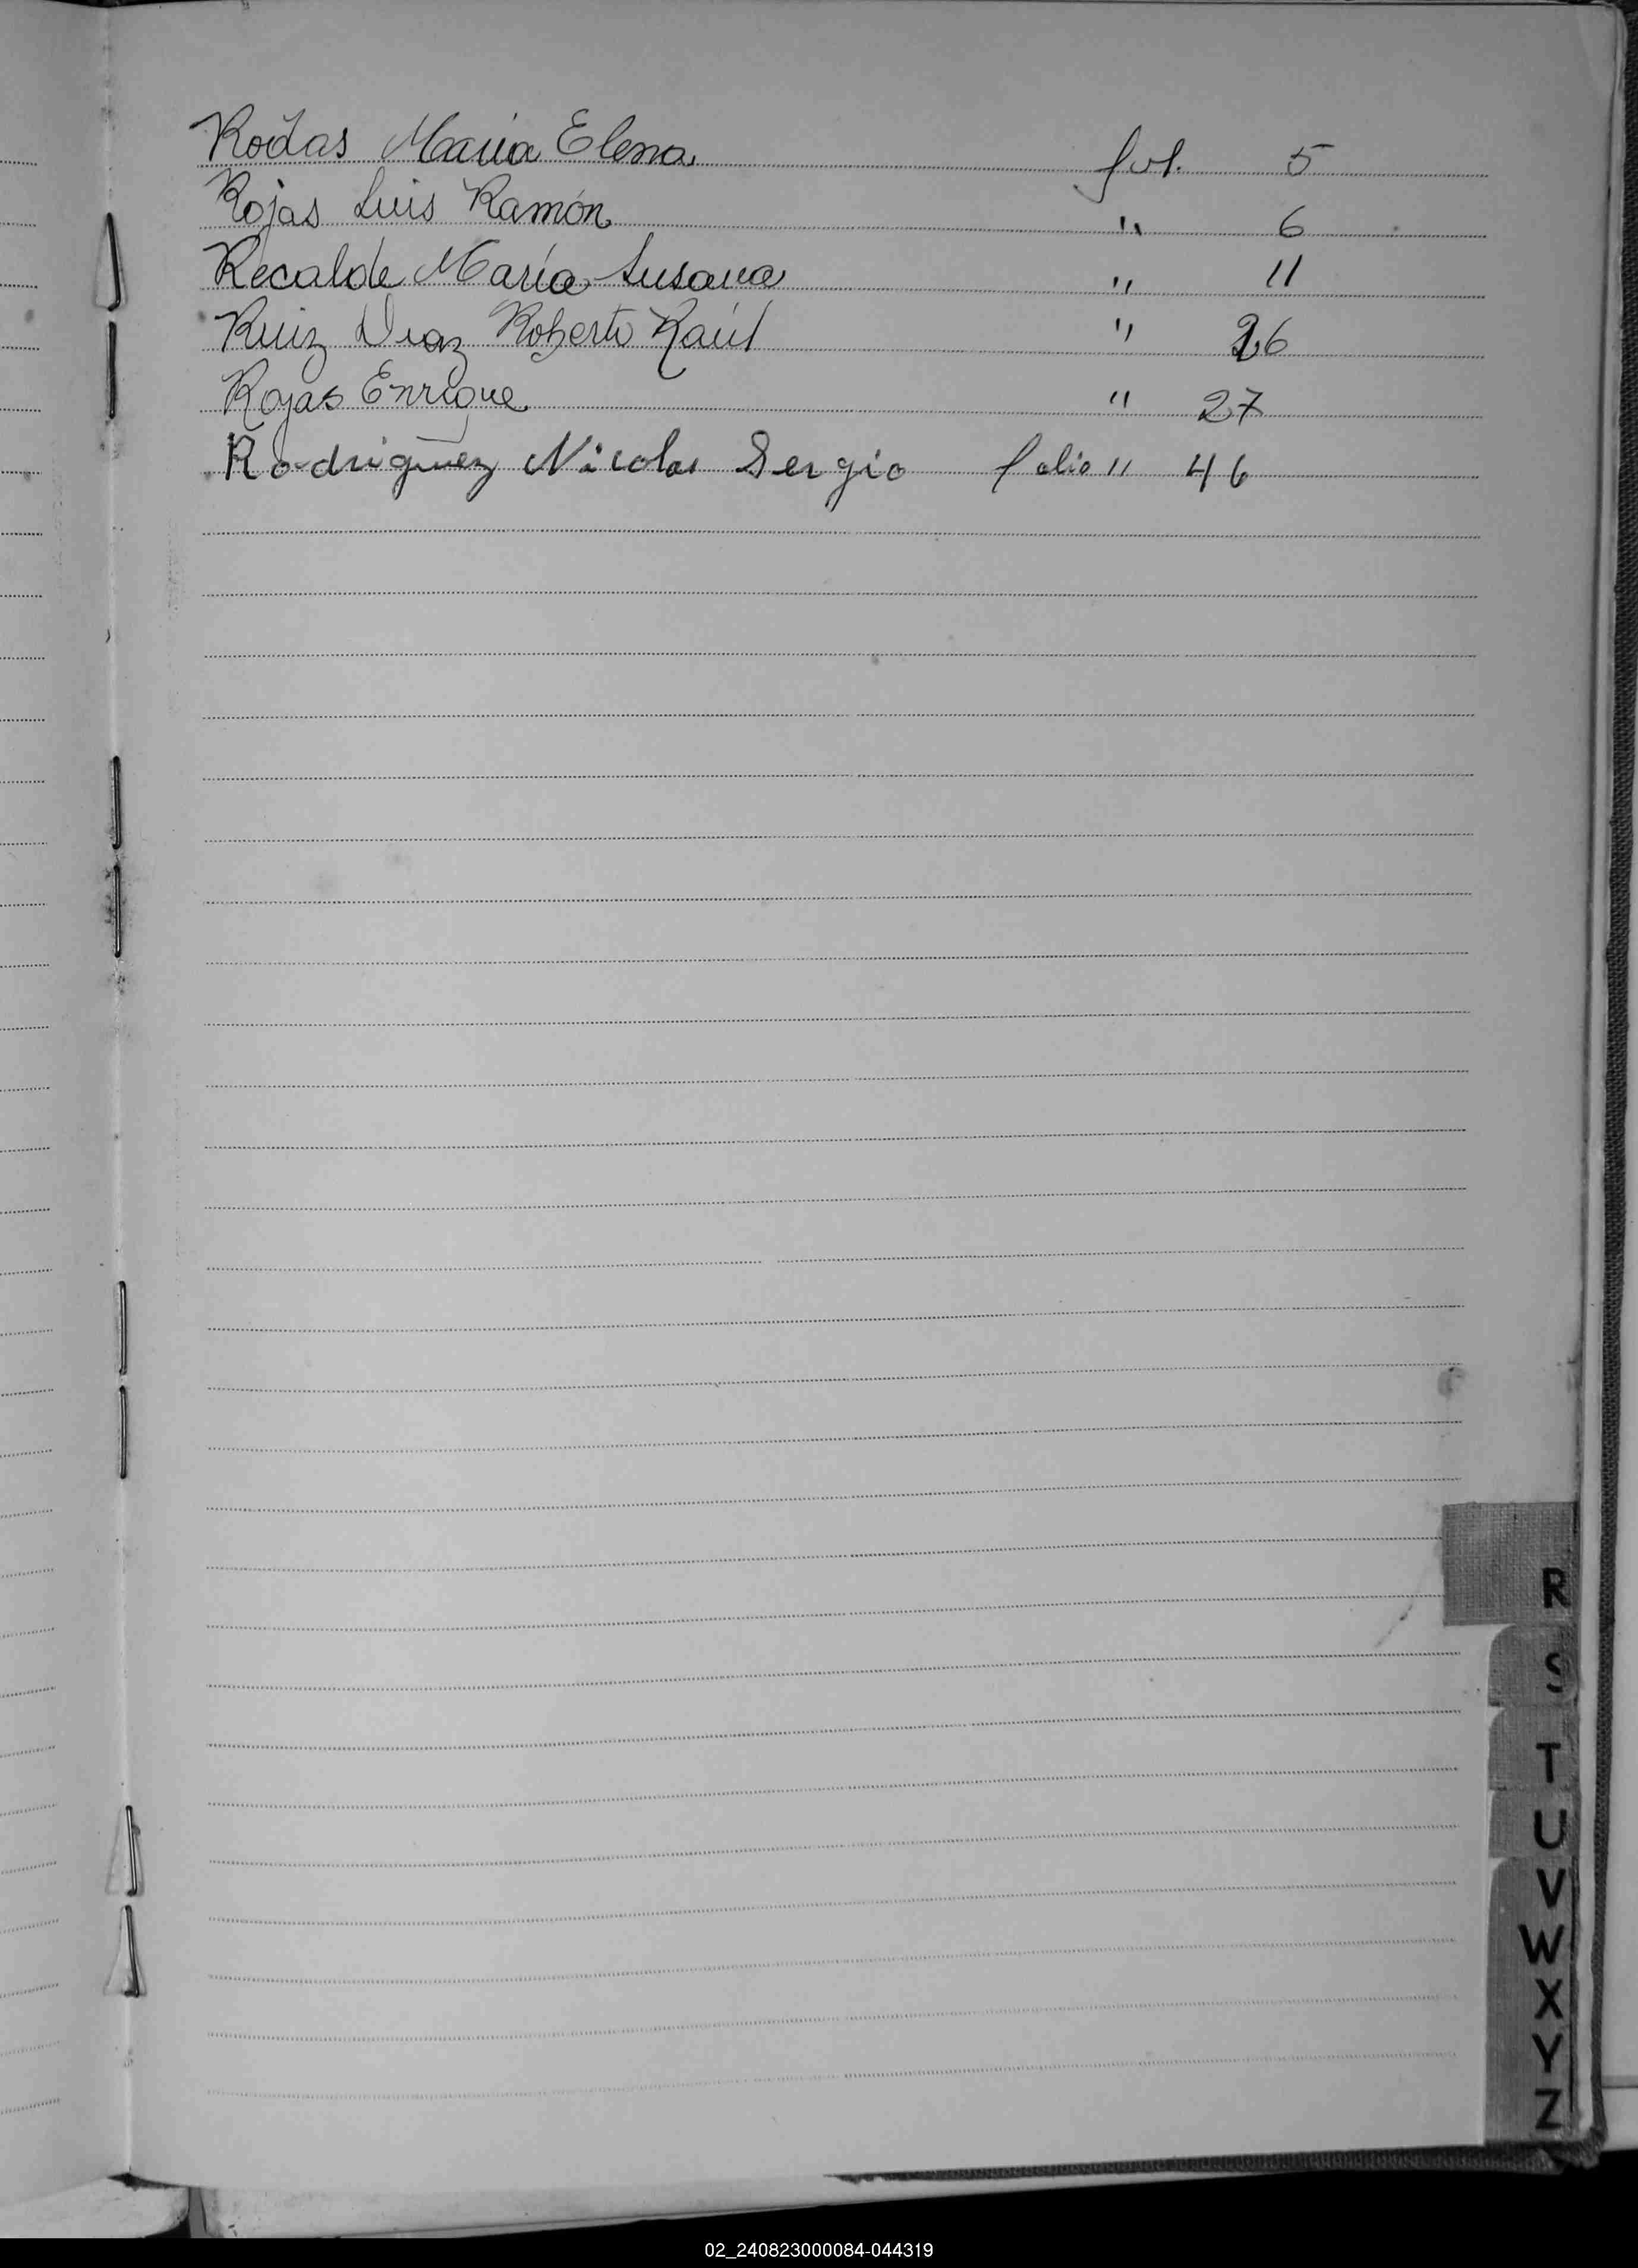 Rodas María Elena fol. 5
Rojas Luis Ramón " 6
Recalde María Susana " 11
Ruiz Diaz Roberto Raúl " 26
Rojas Enrique " 27
Rodriguez Nicolas Sergio folio " 46
R
S
T
U
V
W
X
Y
Z
02_240823000084-044319